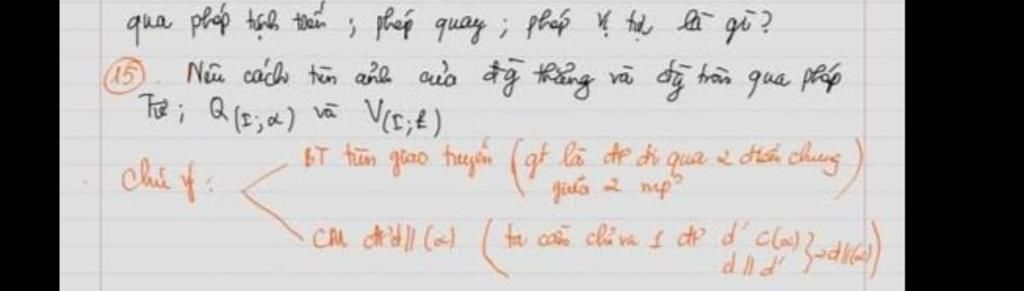 qua phép tịnh tiến ; phép quay ; phép vị tự là gì?
(15). Nêu cách tìm ảnh của đg thẳng và đg tròn qua phép
Tv⃗ ; Q(I;α) và V(I;k)
BT tìm giao tuyến (gt là đt đi qua 2 điểm chung
Chú ý : giữa 2 mp)
CM đt d//(α) (ta cần chỉ ra 1 đt d' ⊂(α)
d // d' }→d//(α))